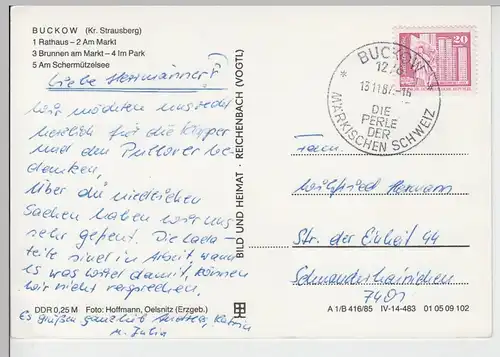 BUCKOW (Kr. Strausberg)
1 Rathaus – 2 Am Markt
3 Brunnen am Markt – 4 Im Park
5 Am Schermützelsee
Liebe Hermänner!
Wir möchten uns recht
herzlich für die
und den Pullover be-
danken,
über die niedlichen
Sachen haben wir uns
sehr gefreut. Die Lada-
teile sind in Arbeit, wann
es was wird damit, können
wir nicht versprechen.
DDR 0,25 M Foto: Hoffmann, Oelsnitz (Erzgeb.)
Es grüßen ganz lieb Andreas, Katrin
u. Julia
BILD UND HEIMAT · REICHENBACH (VOGTL)
20
BUCKOW
13.11.87-16
DIE
PERLE
DER
MÄRKISCHEN SCHWEIZ
Fam.
Wilfried Hermann
Str. der Einheit 44
7401
A 1/B 416/85 IV-14-483 01 05 09 102